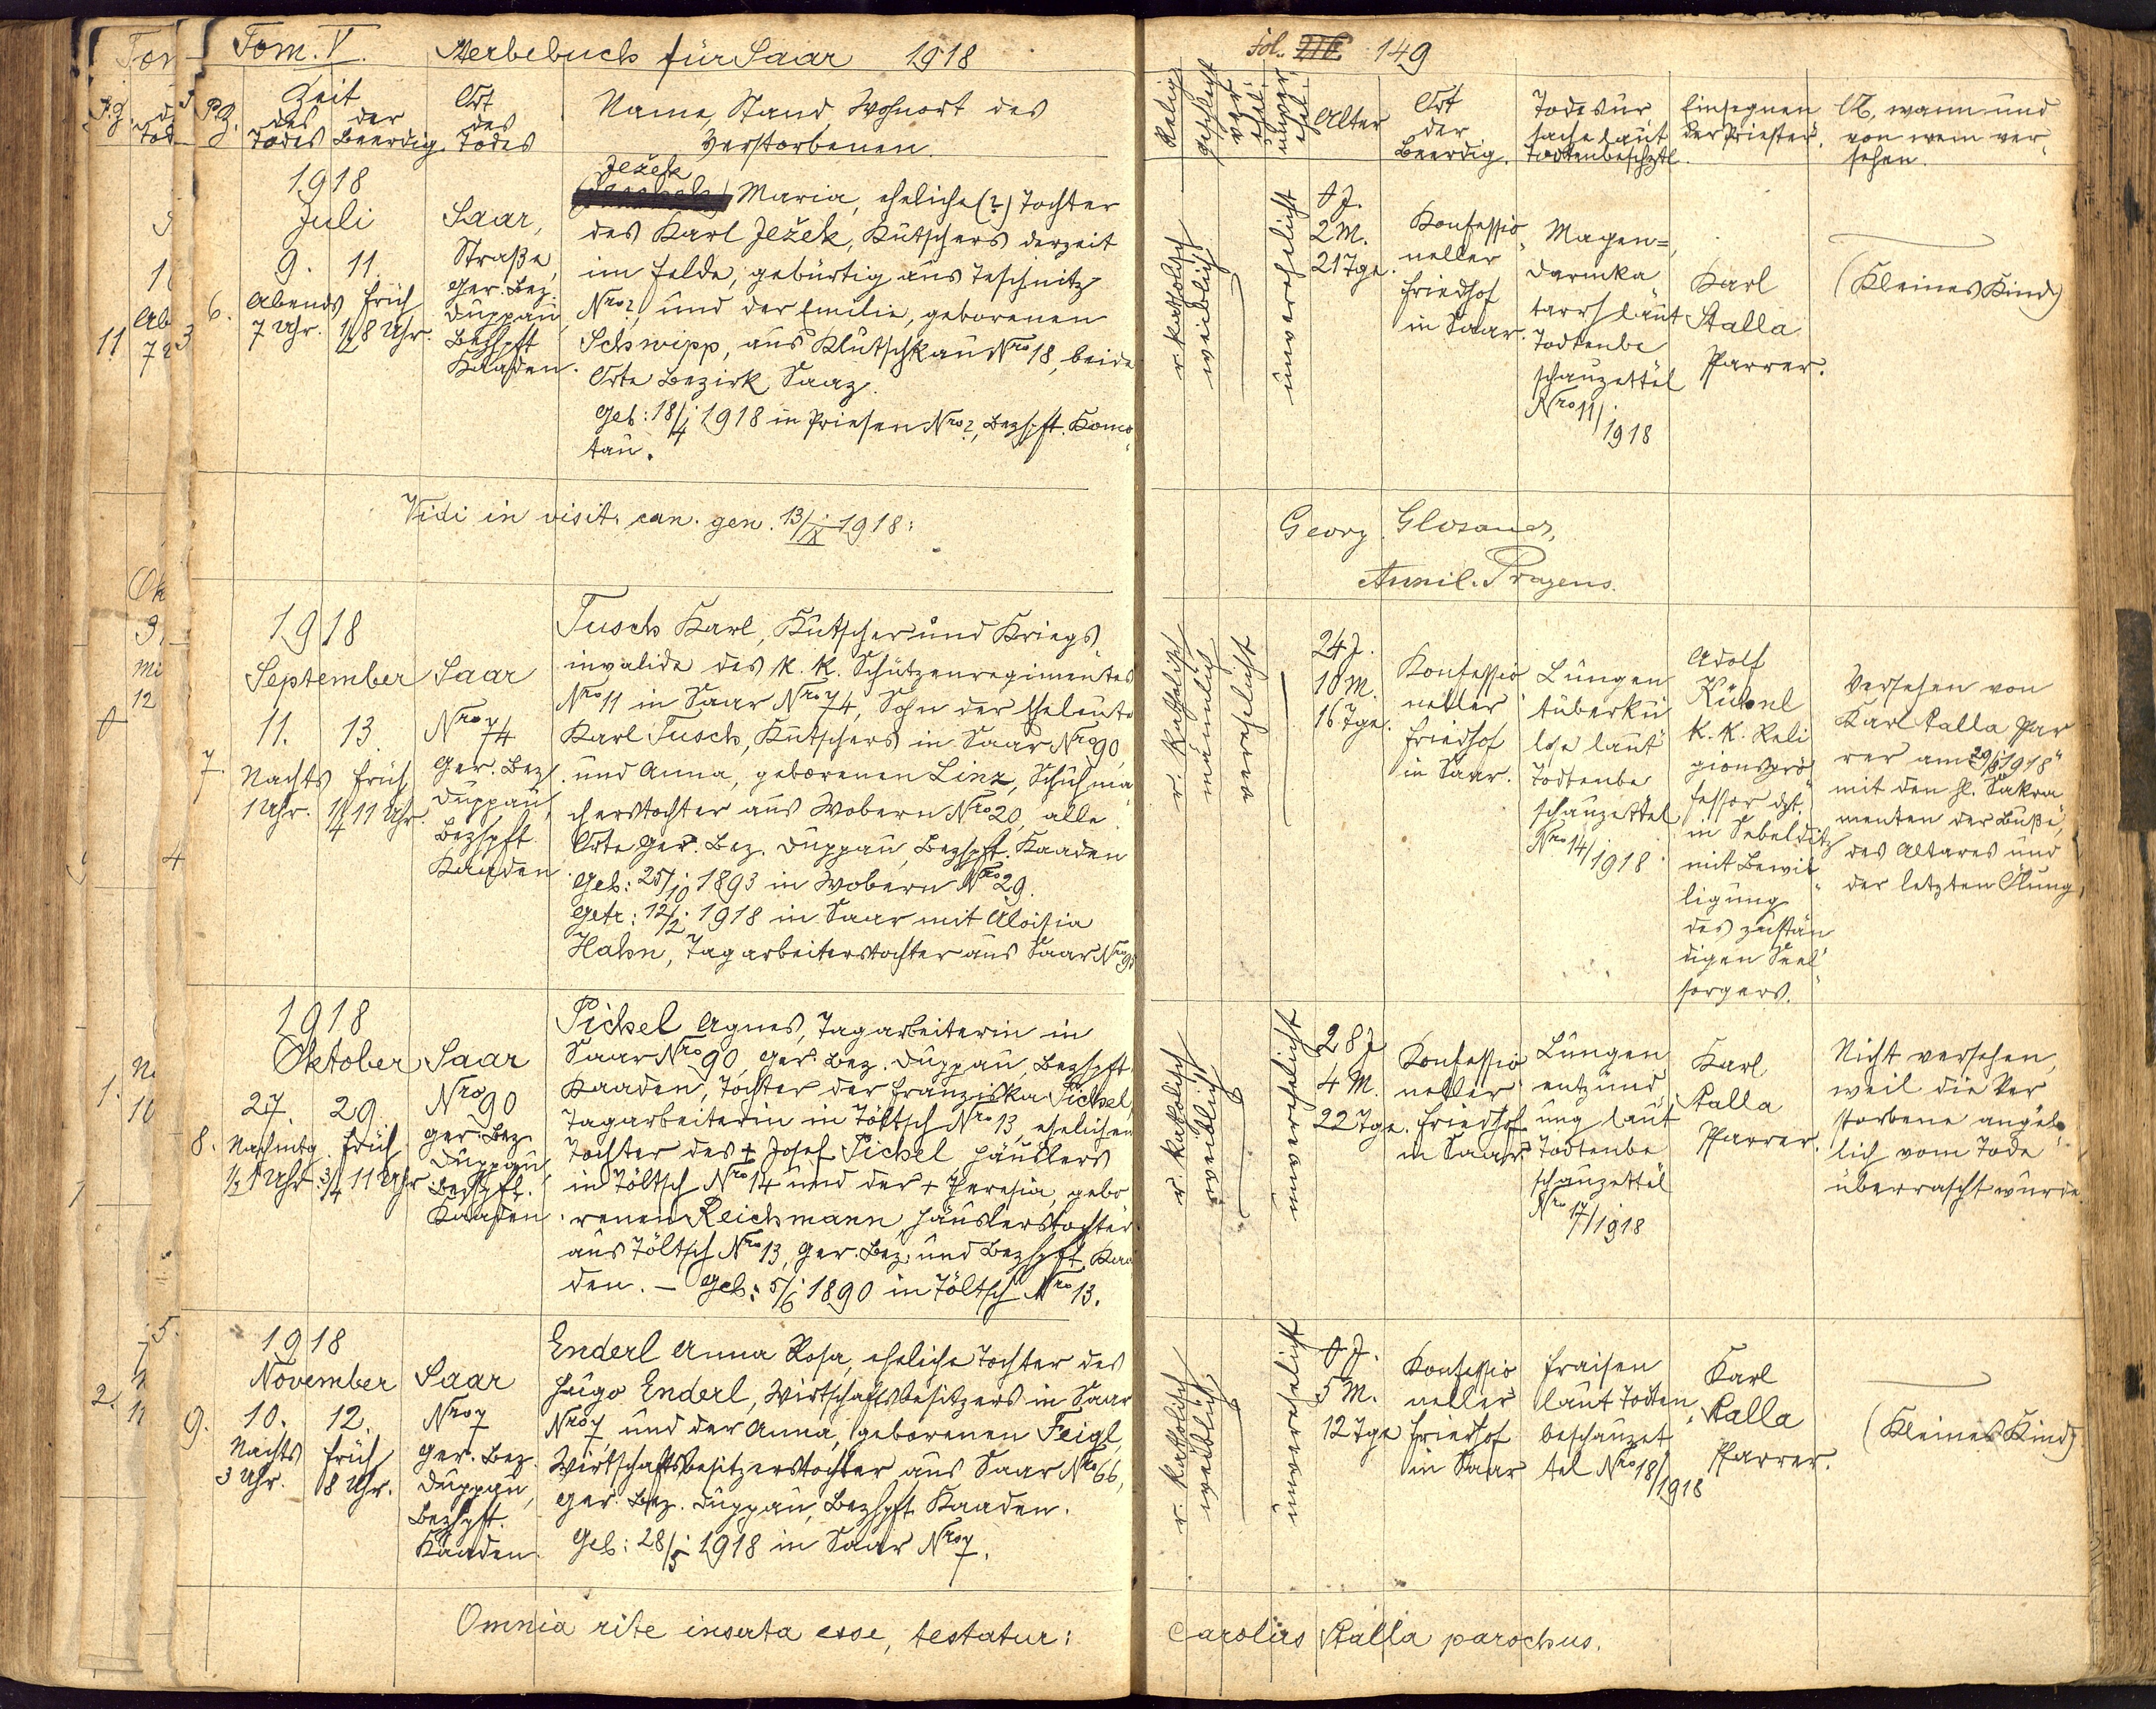 Tom. V. Sterbebuch für Saar 1918
Fol. 216. 149
P.Z.
Zeit
des Todes
der Beerdig.
Ort
des
Todes
Name, Stand, Wohnort des
Verstorbenen.
Relig.
Geschlecht
ver
ehel.
unver
ehel.
Alter
Ort
der
Beerdig.
Todesur
sache laut
Todtenbeschztl.
Einsegnen
der Priester.
Ob, wann und
von wem ver
sehen.
6.
1918
Juli
9. 11.
Abends früh
7 Uhr. 1/2 8 Uhr.
Saar,
Straße,
Ger. Bez.
Duppau,
Bezhpft
Kaaden.
Ježek
Maria, eheliche (?) Tochter
des Karl Ježek, Kutschers derzeit
im Felde, gebürtig aus Teschnitz
Nro ?, und der Emilie, geborenen
Schwipp, aus Klutschkau Nro 18, beide
Orte Bezirk Saaz.
Geb: 18/4 1918 in Priesen Nro ?, Bezhpft. Komo
tau.
r. katholisch
weiblich
unverehelicht
0 J.
2 M.
21 Tge.
Konfessio
neller
Friedhof
in Saar.
Magen=
darmka
tarrh laut
Todtenbe
schauzettel
Nro 11/1918
Karl
Stalla
Pfarrer.
(Kleines Kind)
Vidi in visit. can. gen. 13/IX 1918:
Georg Glosauer,
Auxil. Pragens.
7.
1918
September
11. 13.
Nachts früh
1 Uhr. 1/4 11 Uhr.
Saar
Nro 74
Ger. Bez.
Duppau,
Bezhpft
Kaaden.
Tusch Karl, Kutscher und Kriegs
invalide des K. K. Schützenregimentes
Nro 11 in Saar Nro 74, Sohn der Eheleute
Karl Tusch, Kutschers in Saar Nro 90,
und Anna, geborenen Linz, Schuhma
cherstochter aus Wobern Nro 20, alle
Orte Ger. Bez. Duppau, Bezhpft. Kaaden
Geb: 25/10 1893 in Wobern Nro 29.
Getr: 12/2 1918 in Saar mit Aloisia
Hahn, Tagarbeiterstochter aus Saar Nro
r. katholisch
männlich
verehelicht
24 J.
10 M.
16 Tge.
Konfessio
neller
Friedhof
in Saar.
Lungen
tuberku
lose laut
Todtenbe
schauzettel
Nro 14/1918
Adolf
Kühnl
K. K. Reli
gionspro
fessor dzt.
in Sebelditz
mit Bewil
ligung
des zustän
digen Seel
sorgers.
Versehen von
Karl Stalla Pfar
rer am 20/8 1918
mit den hl. Sakra
menten der Buße,
des Altares und
der letzten Ölung.
8.
1918
Oktober
27. 29.
Nachmtg. früh
1/2 1 Uhr 3/4 11 Uhr
Saar
Nro 90
Ger. Bez.
Duppau,
Bezhpft.
Kaaden.
Pichel Agnes, Tagarbeiterin in
Saar Nro 90, Ger. Bez. Duppau, Bezhpft.
Kaaden, Tochter der Franziska Pichel,
Tagarbeiterin in Töltsch Nro 13, ehelichen
Tochter des + Josef Pichel Häuslers
in Töltsch Nro 14 und der + Theresia, gebo
renen Reichmann, Häuslerstochter
aus Töltsch Nro 13, Ger. Bez. und Bezhpft. Kaa
den. – Geb: 5/6 1890 in Töltsch Nro 13.
r. katholisch
weiblich
unverehelicht
28 J
4 M.
22 Tge.
Konfessio
neller
Friedhof
in Saar
Lungen
entzünd
ung laut
Todtenbe
schauzettel
Nro 17/1918
Karl
Stalla
Pfarrer.
Nicht versehen,
weil die Ver
storbene angeb
lich vom Tode
überrascht wurde.
9.
1918
November
10. 12.
Nachts früh
3 Uhr. 8 Uhr.
Saar
Nro 7
Ger. Bez.
Duppau,
Bezhpft.
Kaaden.
Enderl Anna Rosa, eheliche Tochter des
Hugo Enderl, Wirtschaftsbesitzers in Saar
Nro 7 und der Anna, geborenen Feigl,
Wirtschaftsbesitzerstochter aus Saar Nro 66,
Ger. Bez. Duppau, Bezhpft Kaaden.
Geb: 28/5 1918 in Saar Nro 7.
r. katholisch
weiblich
unverehelicht
0 J.
5 M.
12 Tge
Konfessio
neller
Friedhof
in Saar
Fraisen
laut Todten
beschauzet
tel Nro 18/1918
Karl
Stalla
Pfarrer.
(Kleines Kind)
Omnia rite inserta esse, testatur:
Carolus Stalla parochus.